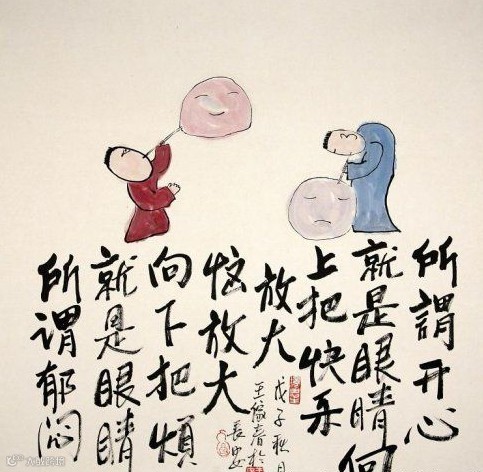 所謂开心
就是眼睛向
上把快乐
放大
戊子秋月
王家春於
长安
所謂郁闷
就是眼睛
向下把煩
恼放大